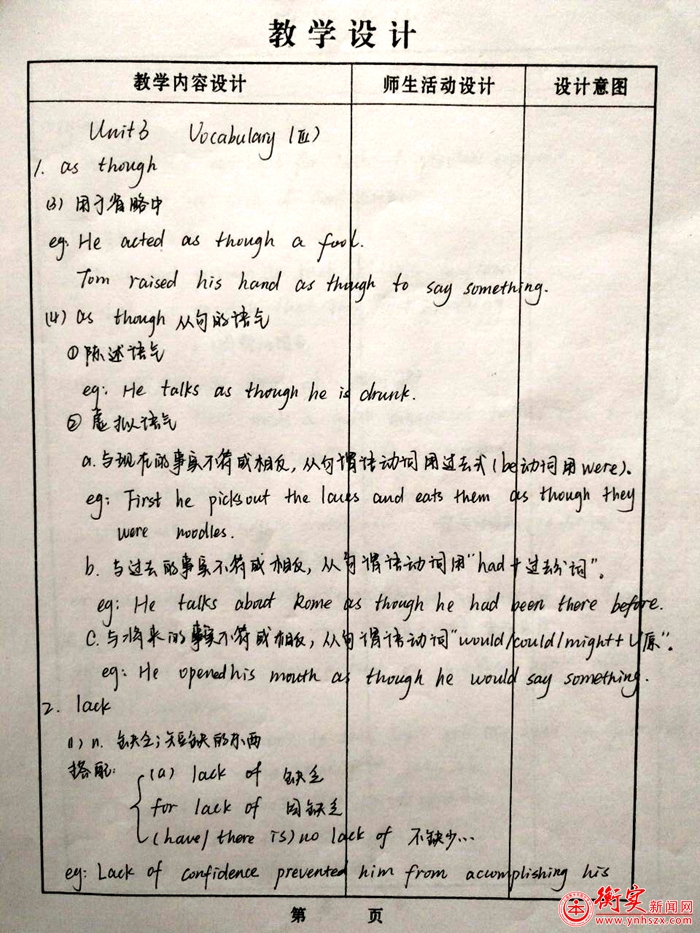 教学设计
教学内容设计 师生活动设计 设计意图
Unit 3 Vocabulary (Ⅲ)
1. as though
(3) 用于省略中
eg: He acted as though a fool.
Tom raised his hand as though to say something.
(4) as though 从句的语气
① 陈述语气
eg: He talks as though he is drunk.
② 虚拟语气
a. 与现在的事实不符或相反，从句谓语动词用过去式(be动词用were)。
eg: First he picks out the laces and eats them as though they
were noodles.
b. 与过去的事实不符或相反，从句谓语动词用"had+过去分词"。
eg: He talks about Rome as though he had been there before.
c. 与将来的事实不符或相反，从句谓语动词"would/could/might+V原"。
eg: He opened his mouth as though he would say something.
2. lack
(1) n. 缺乏；短缺的东西
搭配: (a) lack of 缺乏
for lack of 因缺乏
(have/there is) no lack of 不缺少…
eg: Lack of confidence prevented him from accomplishing his
第 页
衡实新闻网
www.ynhszx.com